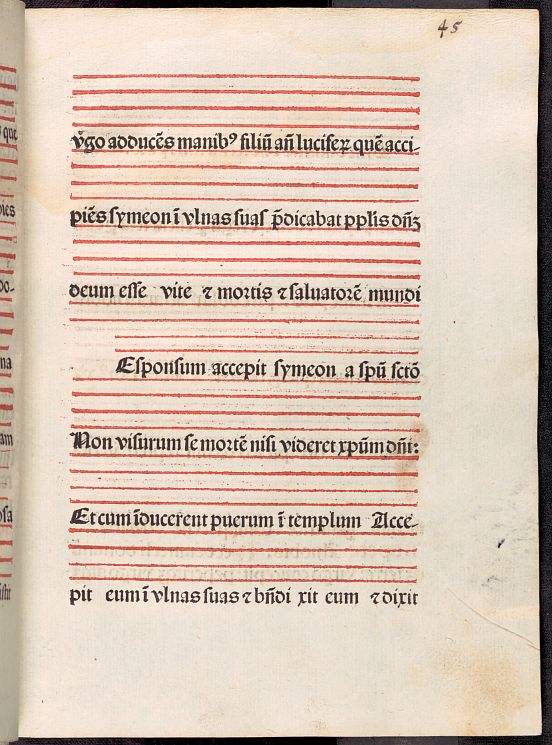 45
v̄go adducēs manibꝰ filiū añ luciferꝝ quē acci-
piēs symeon ī vlnas suas p̄dicabat pplis dn̄ꝫ
deum esse vite ⁊ mortis ⁊ saluatorē mundi
Esponsum accepit symeon a spū sctō
Non visurum se mortē nisi videret xp̄um dn̄i:
Et cum īducerent puerum ī templum Acce-
pit eum ī vlnas suas ⁊ bn̄di xit eum ⁊ dixit